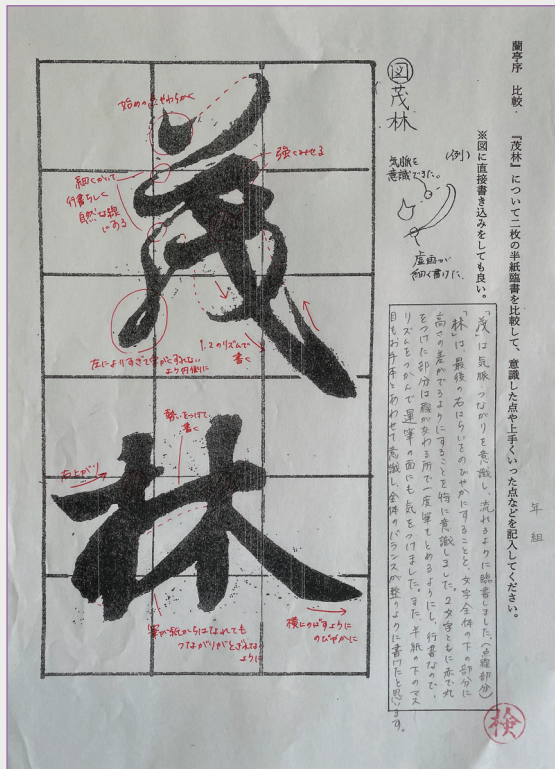 蘭亭序 比較 『茂林』について二枚の半紙臨書を比較して、意識した点や上手くいった点などを記入してください。
※図に直接書き込みをしても良い。
年 組
図 茂林
(例)
気脈を
意識できた。
虚画が
細く書けた。
「茂」は気脈、つながりを意識し、流れるように臨書しました。(点線部分)
「林」は、最後の右はらいをのびやかにすることと、文字全体の下の部分に
高さの差がでるようにすることを特に意識しました。2文字ともに赤で丸
をつけた部分は線が交わる所で一度筆をとめるようにし、行書なので、
リズムをつかんで運筆の面にも気をつけました。また、半紙の下のマス
目もお手本とあわせて意識し、全体のバランスが整うように書けたと思います。
検
茂
林
始めの点やわらかく
強くみせる
細くかいて
行書らしく
自然な線
にする
左によりすぎて字がくずれない
より円周に
1、2のリズムで
書く
勢いをつけて、
書く
右上がり
筆が紙からはなれても
つながりがとぎれない
ように
横にのばすように
のびやかに